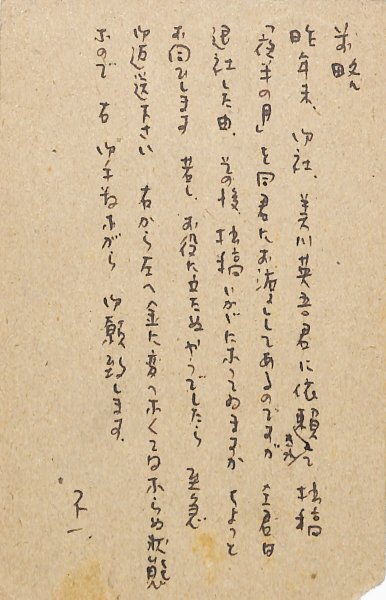 前略
昨年末、御社、美川英吾君に依頼されて 拙稿
「夜半の月」を同君にお渡ししてあるのですが 全君は
退社した由、その後、拙稿いかがになってゐますか ちょっと
お伺ひします 若し、お役に立たぬやうでしたら 至急
御返送下さい 右から左へ金に変へなくてはならぬ状態
なので 右 御手数ながら 御願致します。
不一